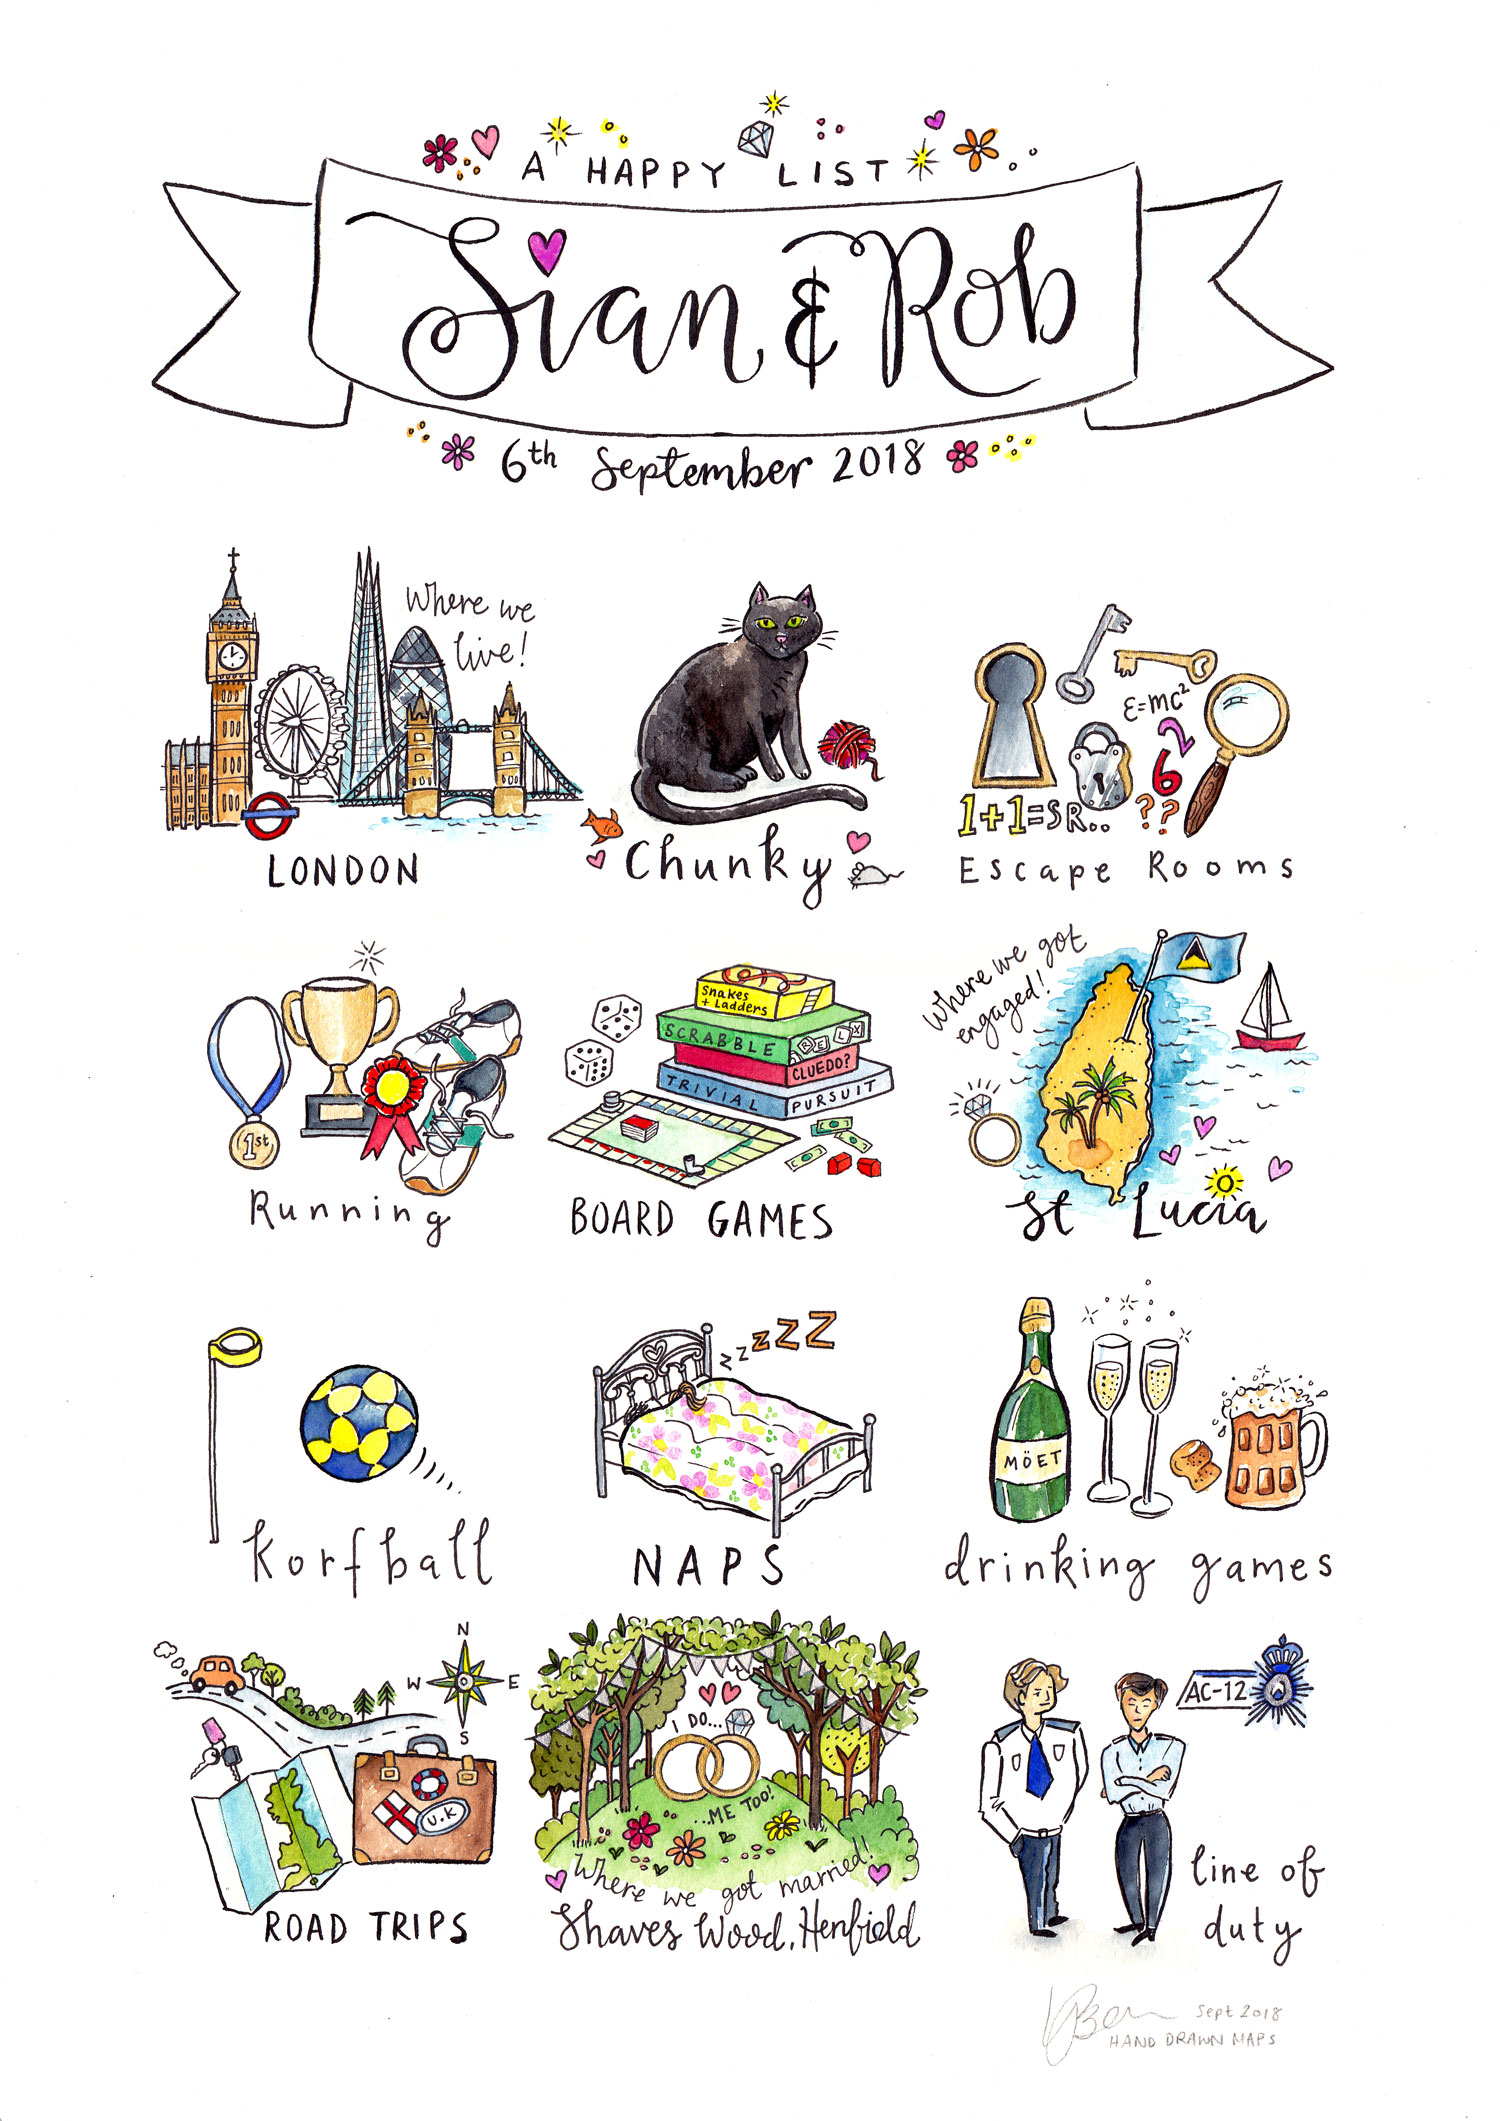 A HAPPY LIST
Sian & Rob
6th September 2018
Where we
live!
LONDON
Chunky
E=MC²
2
6
??
1+1=SR..
Escape Rooms
1st
Running
Snakes
+ Ladders
SCRABBLE
RELX
CLUEDO?
TRIVIAL PURSUIT
BOARD GAMES
Where we got
engaged!
St Lucia
Korfball
zzzZZZ
NAPS
MÖET
drinking games
N
W E
S
U.K
ROAD TRIPS
I DO...
...ME TOO!
Where we got married!
Shaves Wood, Henfield
AC-12
line of
duty
Sept 2018
HAND DRAWN MAPS